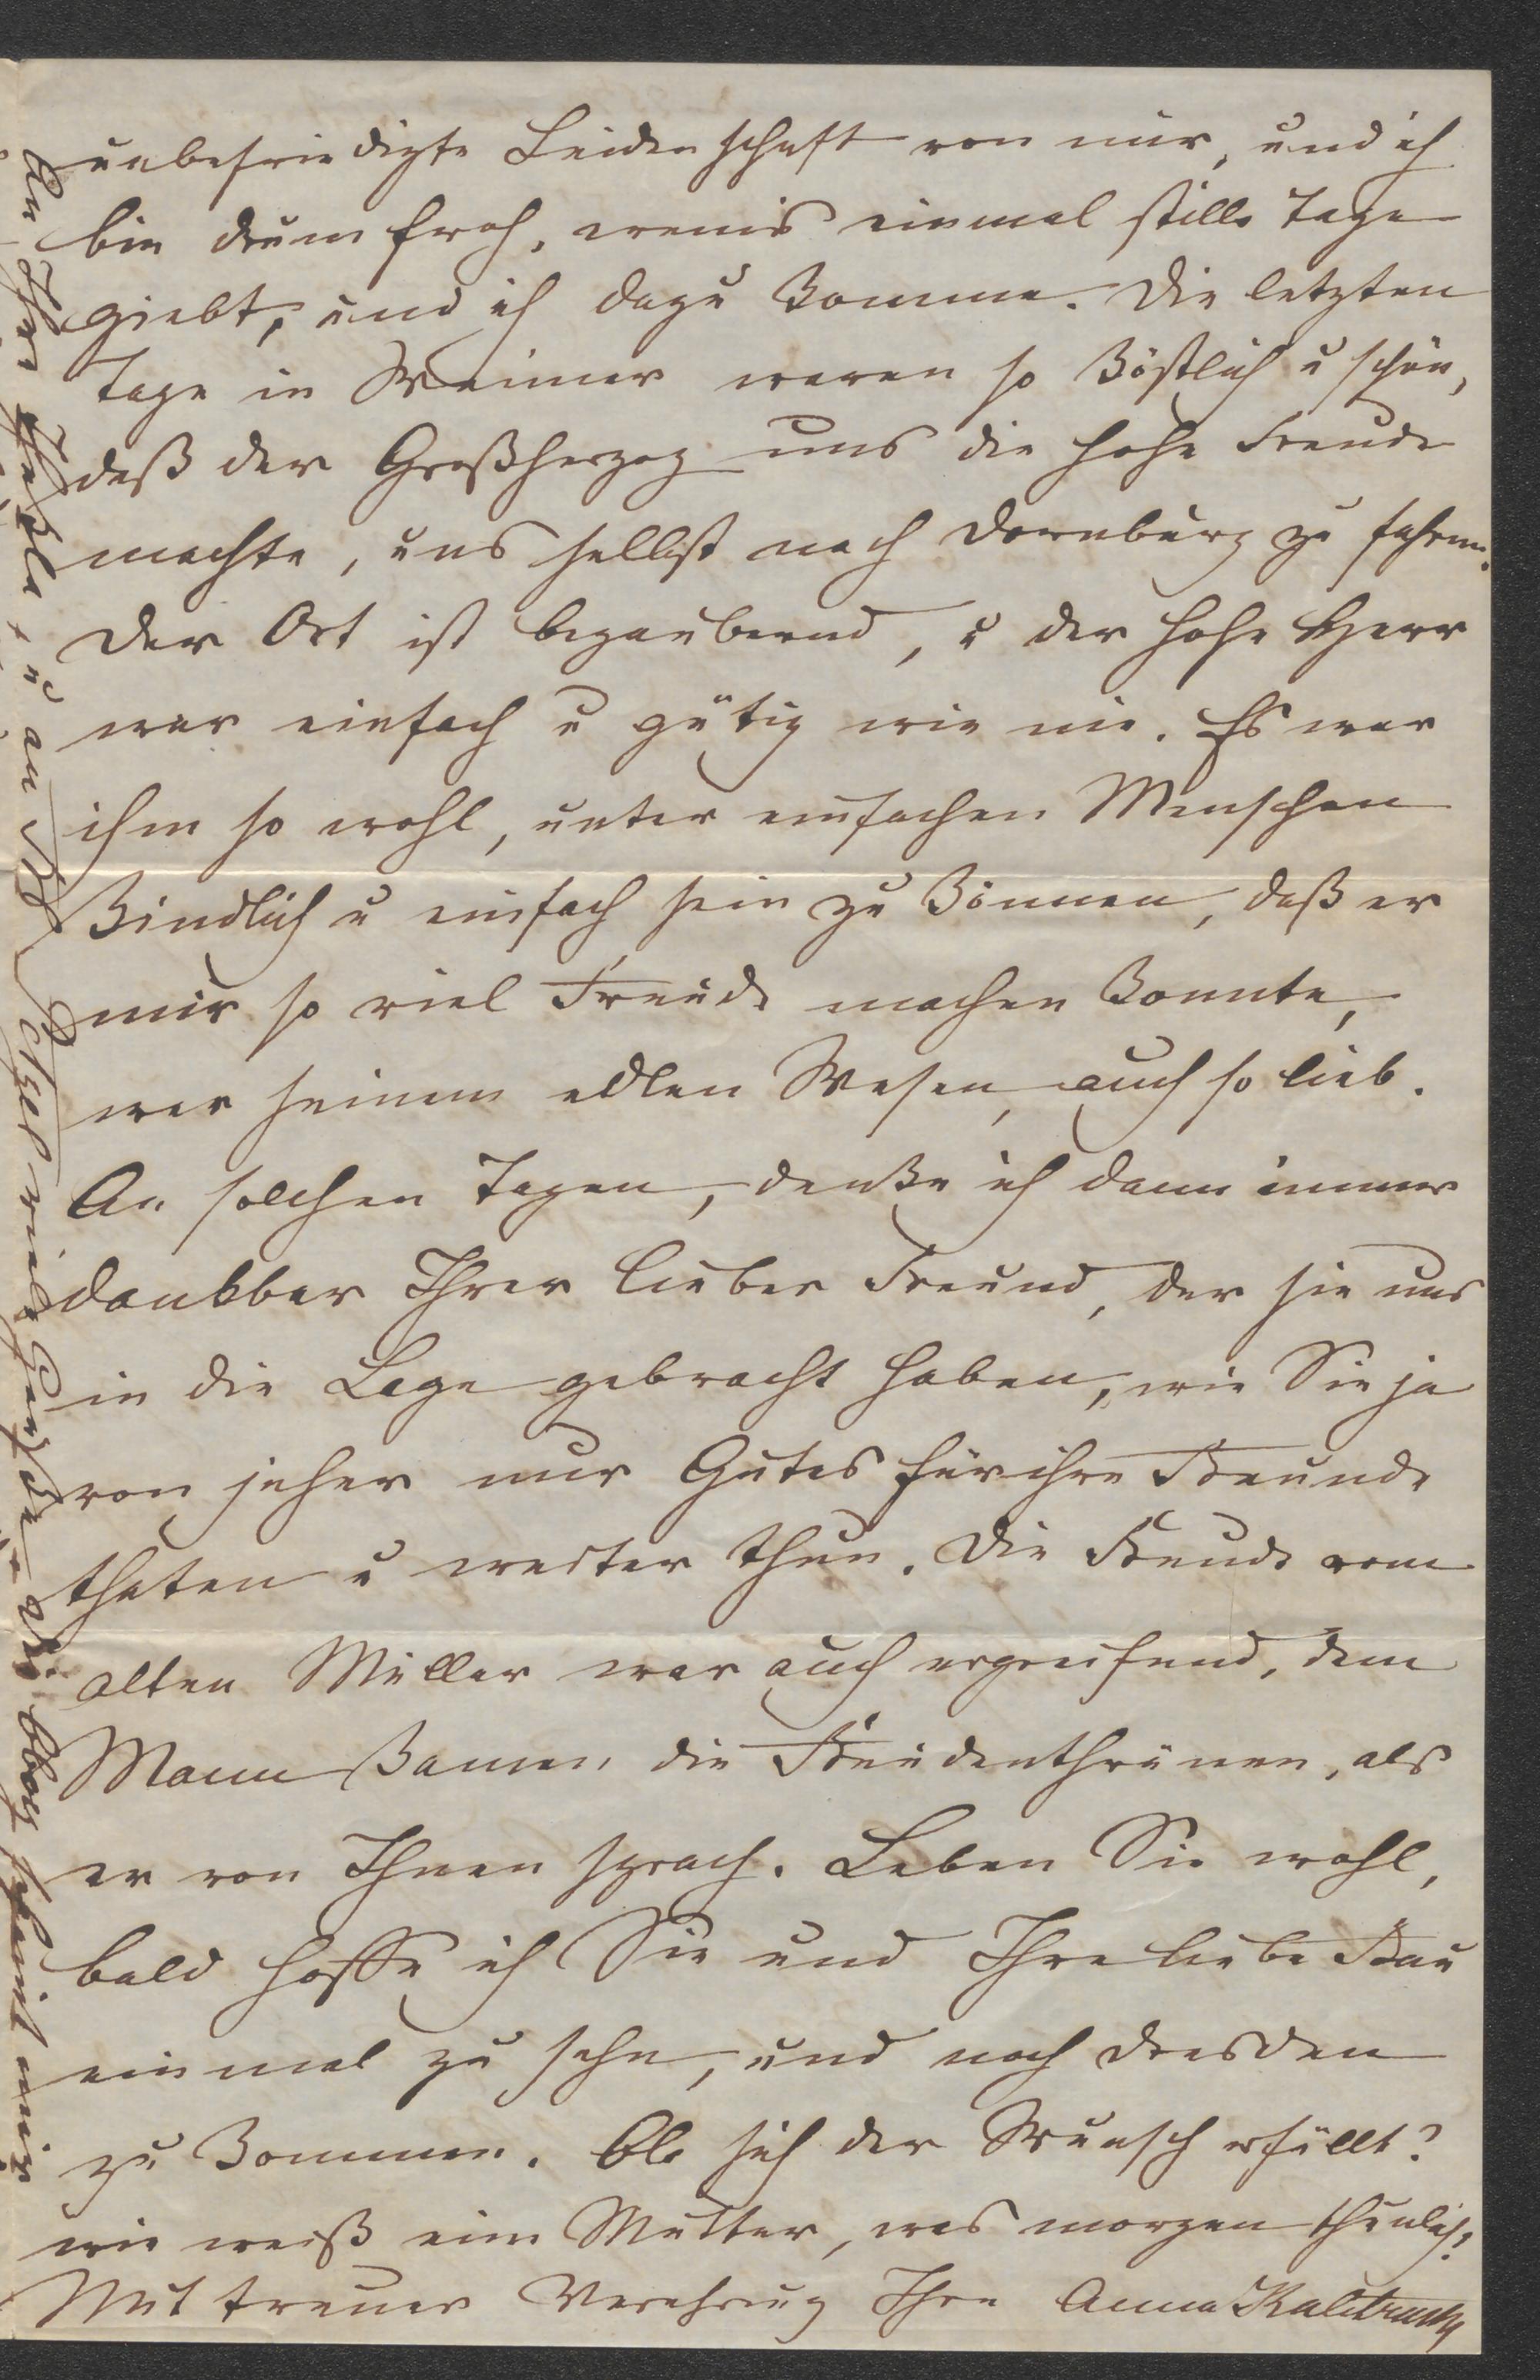 unbefriedigte Leidenschaft von mir, und ich
bin drum froh, wenns einmal stille Tage
giebt, und ich dazu komme. Die letzten
Tage in Weimar waren so köstlich u schön,
daß der Großherzog uns die hohe Freude
machte, uns selbst nach Dornburg zu fahren.
Der Ort ist bezaubernd, u der hohe Herr
war einfach u gütig wie nie. Es war
ihm so wohl, unter einfachen Menschen
kindlich u einfach sein zu können, daß er
mir so viel Freude machen konnte,
war seinem edlen Wesen, auch so lieb.
An solchen Tagen, denke ich dann immer
dankbar Ihrer lieber Freund, der sie uns
in die Lage gebracht haben, wie Sie ja
von jeher nur Gutes für ihre Freunde
thaten u weiter thun. Die Freude vom
alten Müller war auch ergreifend, dem
Mann kamen die Freudenthränen, als
er von Ihnen sprach. Leben Sie wohl,
bald hoffe ich Sie und Ihre liebe Frau
einmal zu sehn, und nach Dresden
zu kommen. Ob sich der Wunsch erfüllt?
wie weiß eine Mutter, was morgen thunlich?
Mit treuer Verehrung Ihre Anna
An Ihre u an viele